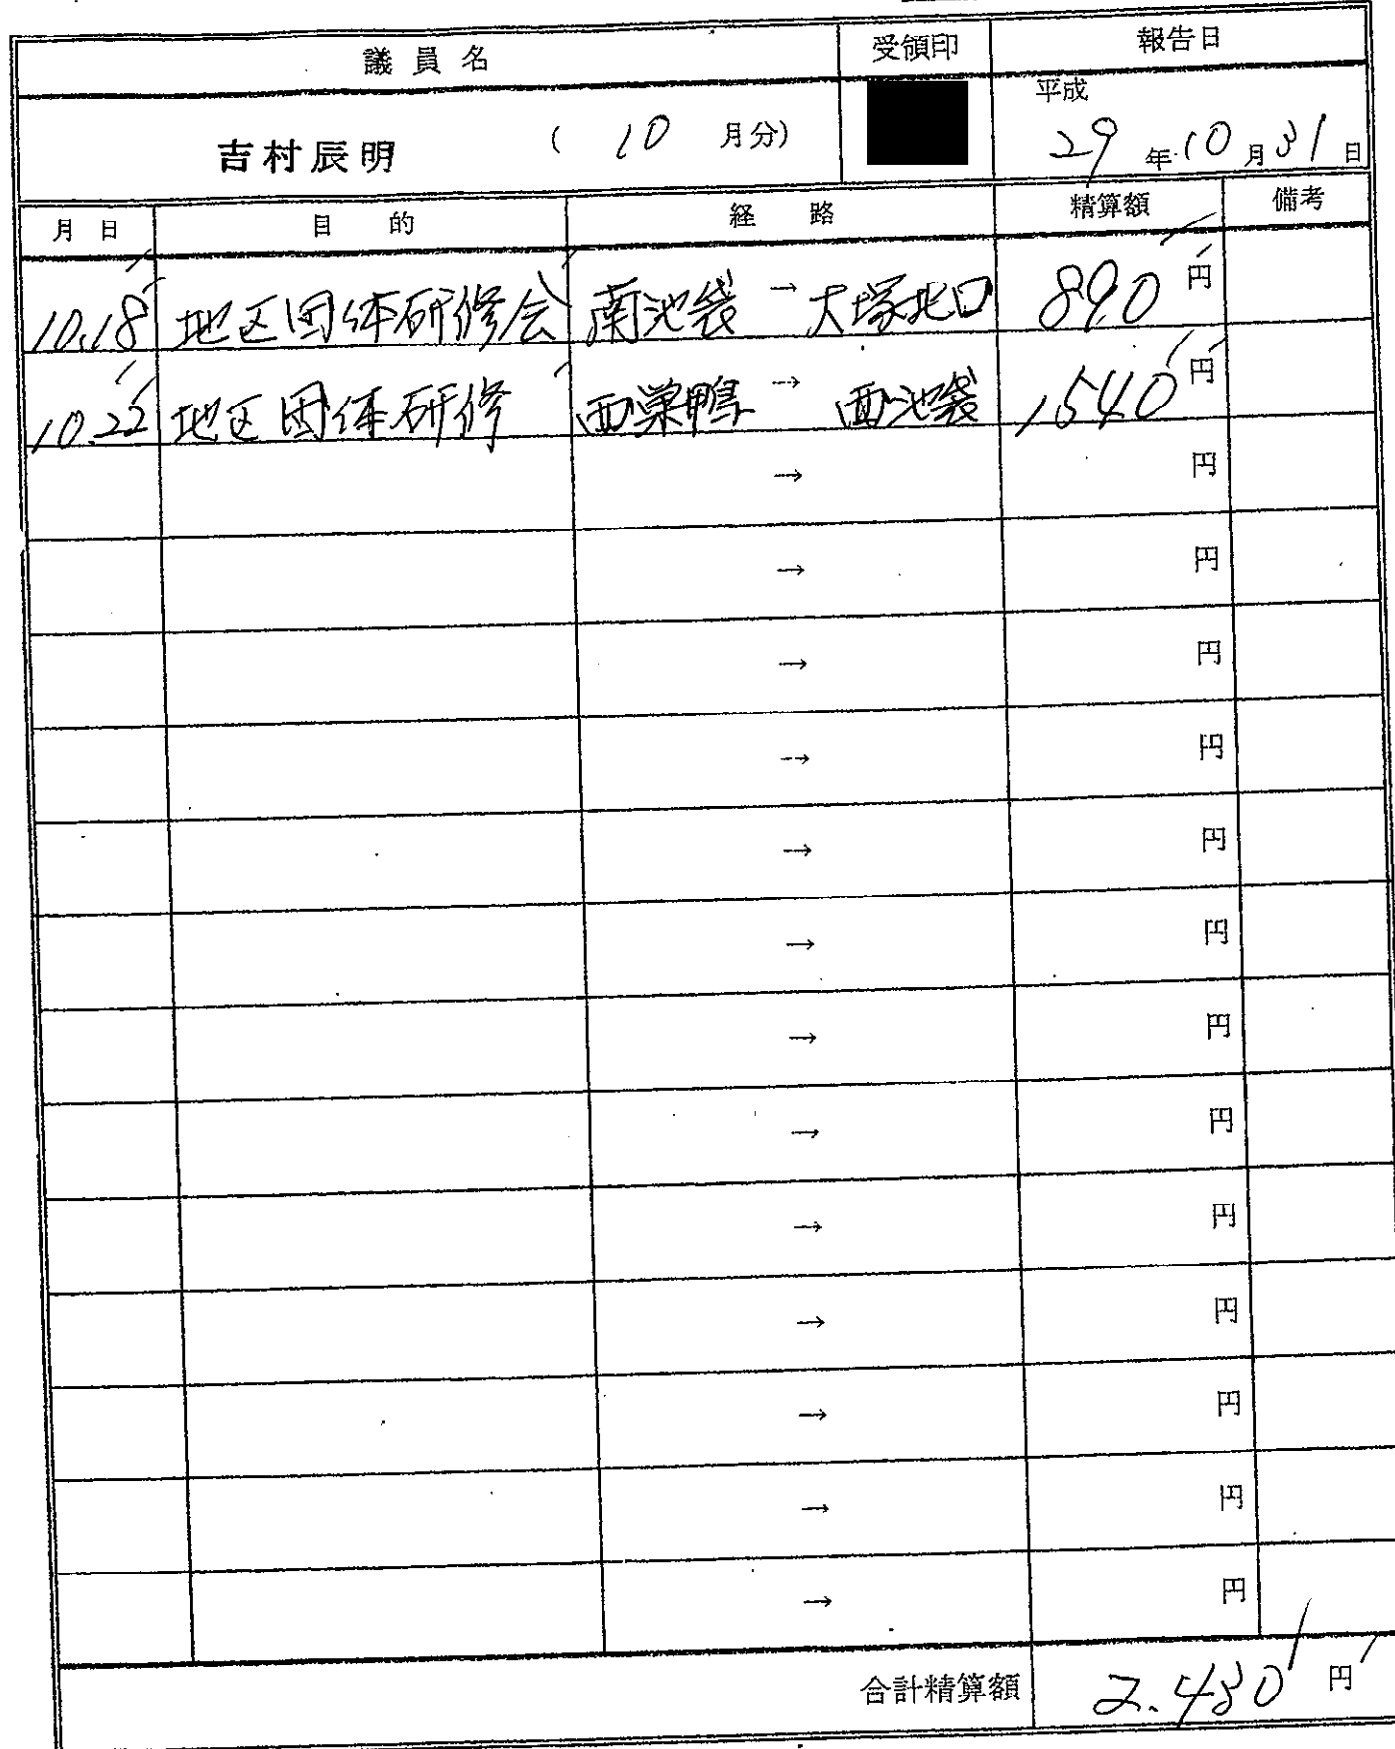 議員名 受領印 報告日
吉村辰明 ( 10 月分) 平成 29 年 10 月 31 日
月日 目的 経路 精算額 備考
10.18 地区団体研修会 南池袋 → 大塚北口 890 円
10.22 地区団体研修 西巣鴨 → 西池袋 1540 円
→ 円
→ 円
→ 円
→ 円
→ 円
→ 円
→ 円
→ 円
→ 円
→ 円
→ 円
→ 円
→ 円
合計精算額 2.430 円